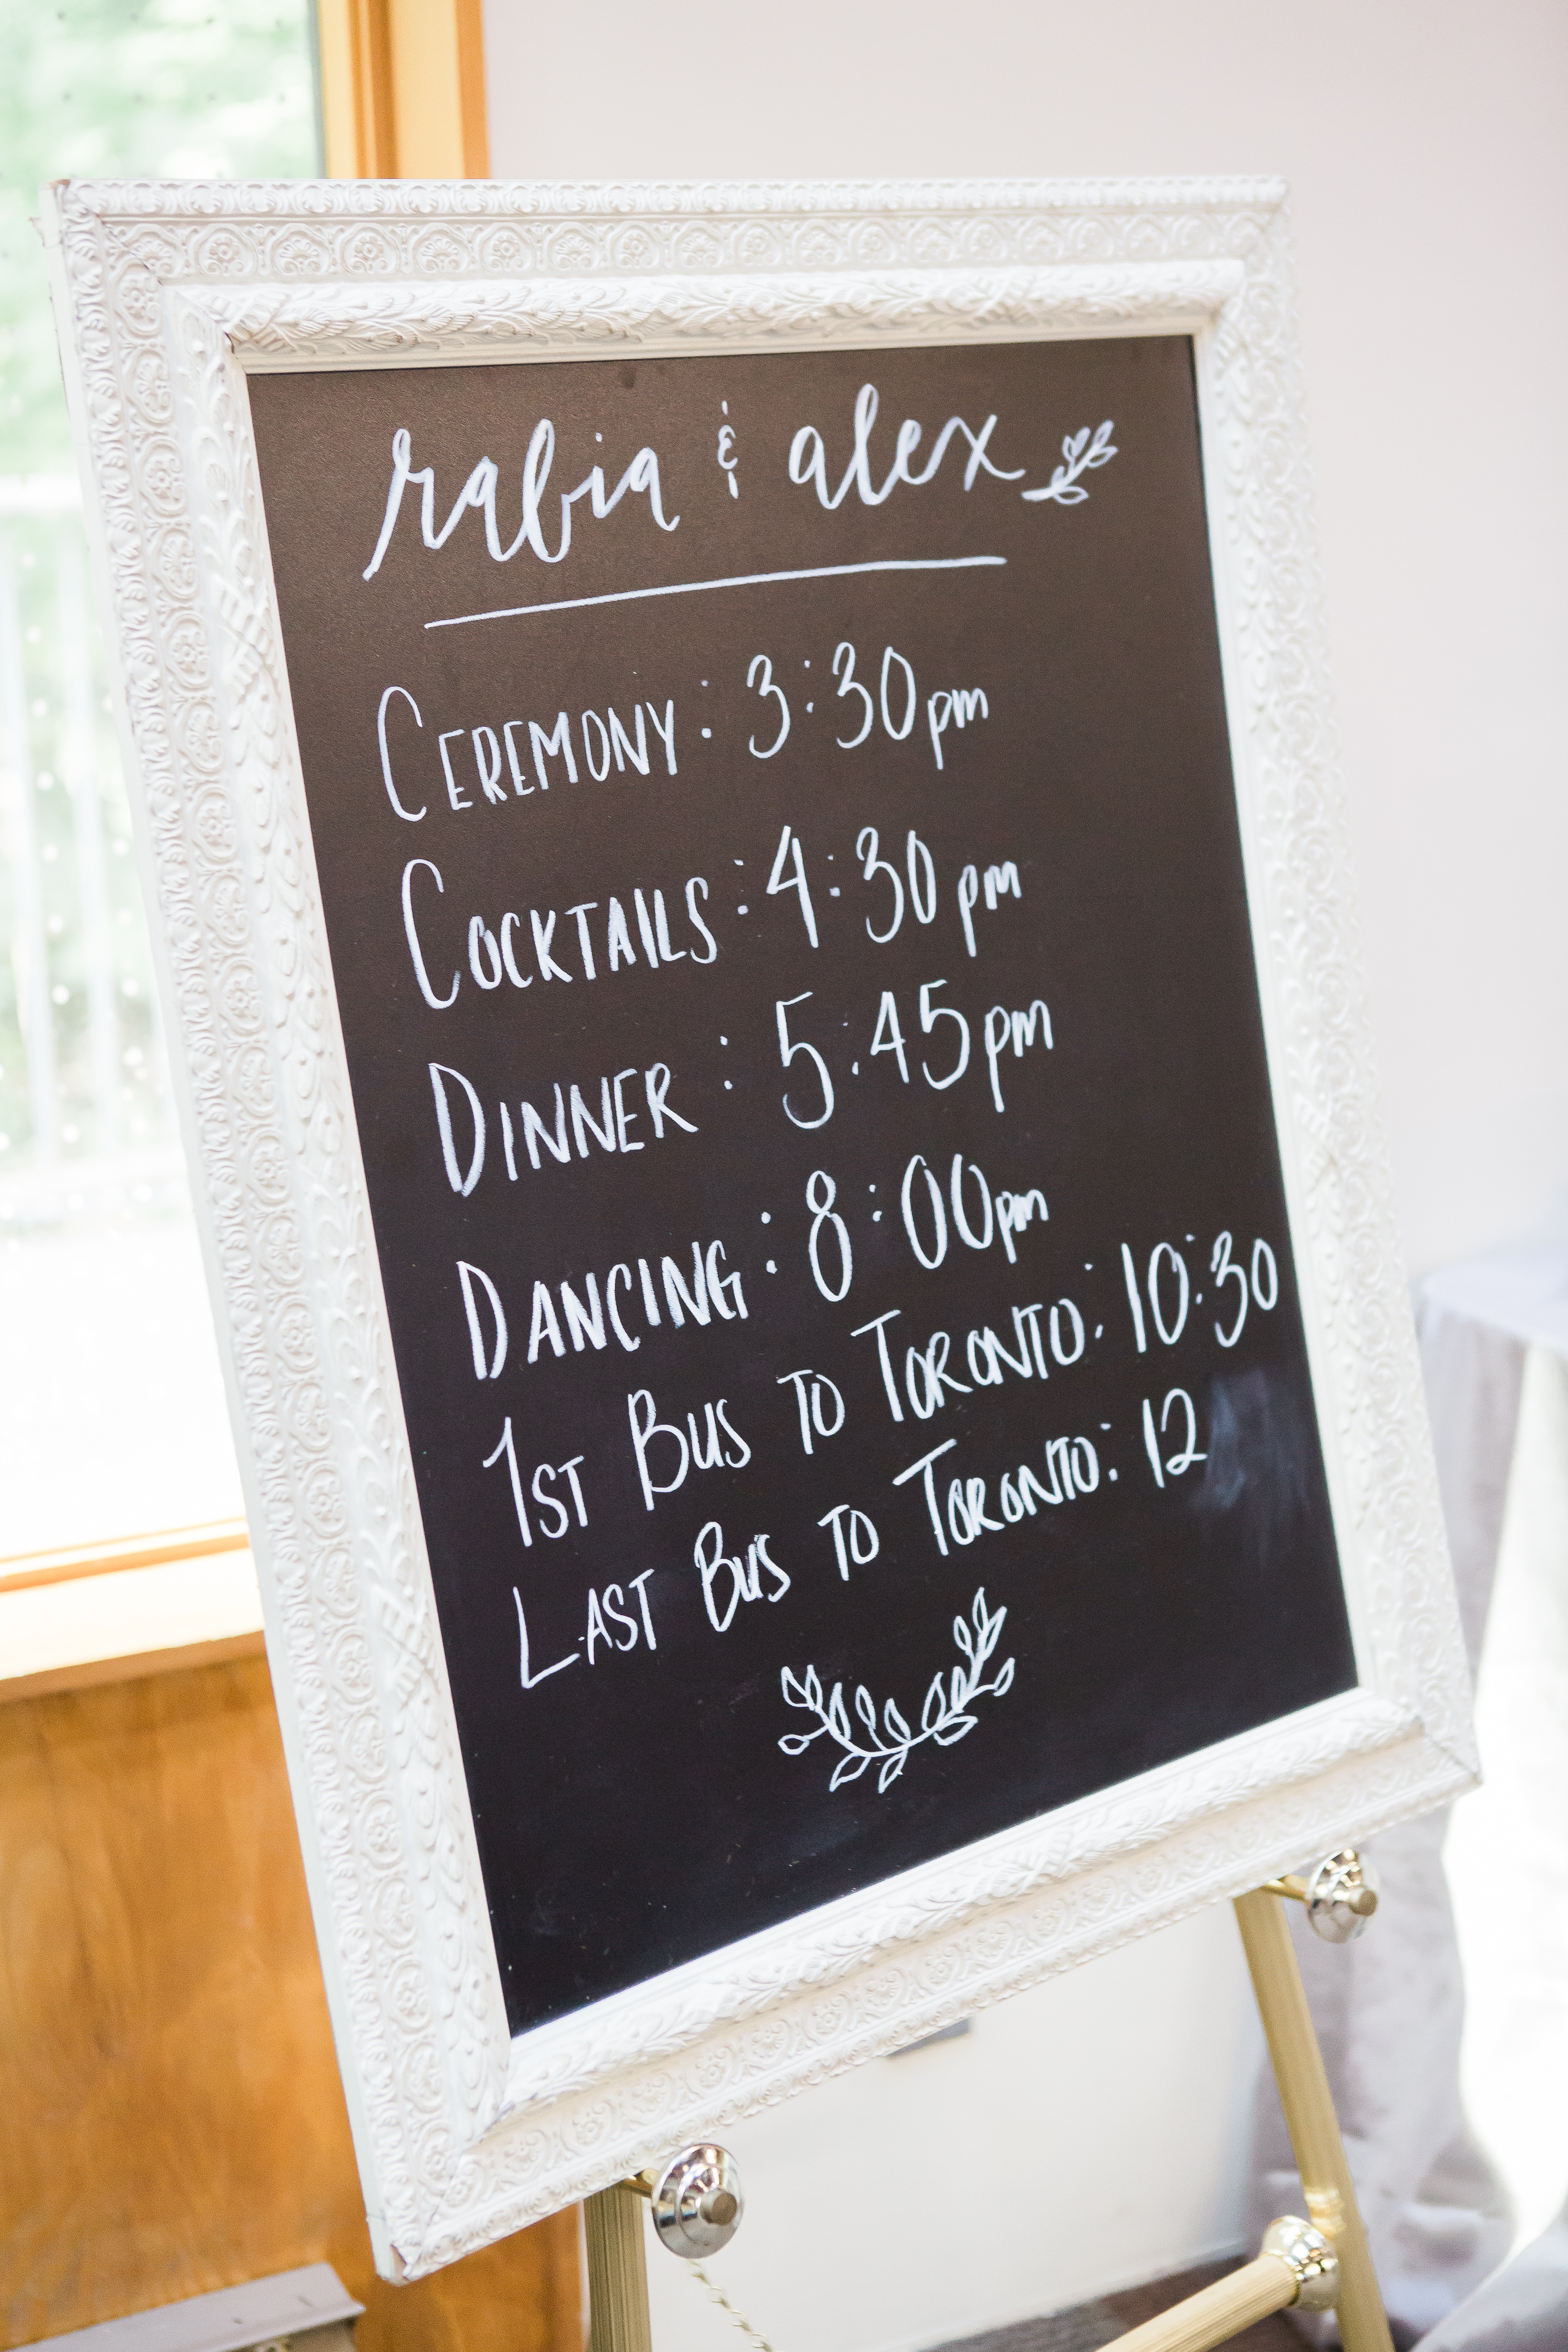 rabia & alex
CEREMONY: 3:30pm
COCKTAILS: 4:30 pm
DINNER: 5:45pm
DANCING: 8:00pm
1ST BUS TO TORONTO: 10:30
LAST BUS TO TORONTO: 12